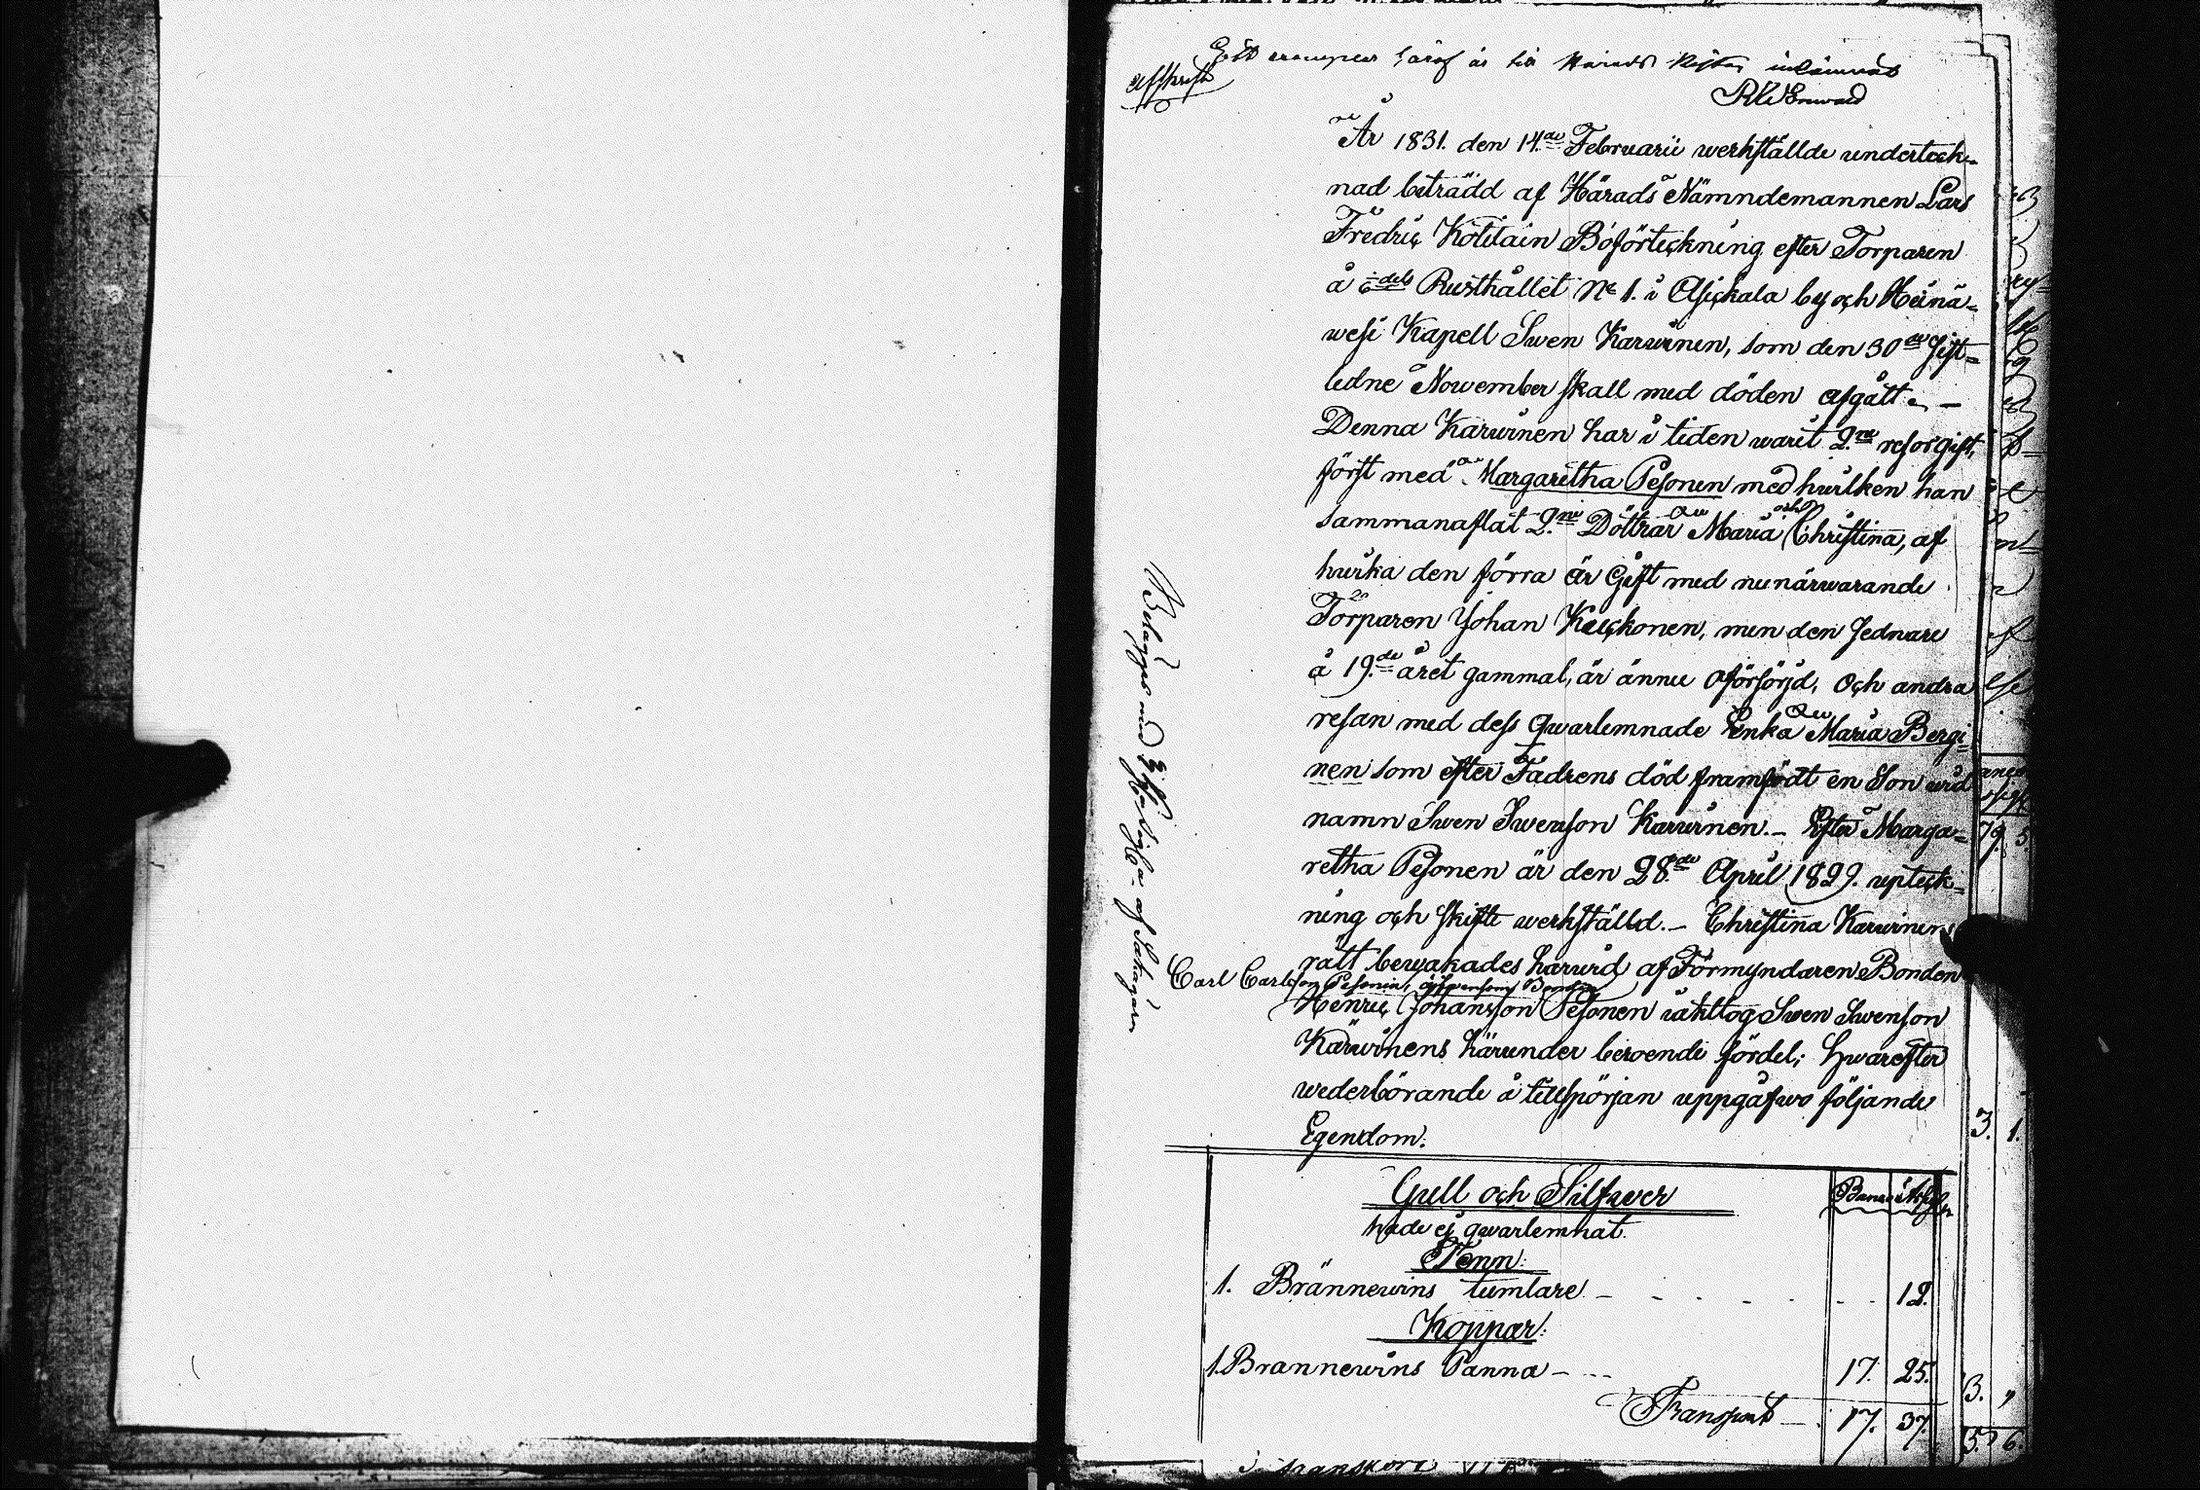 Ett exemplar häraf är till Härads Rätten inlämnat
Afskrift
År 1831. den 14.de Februarii werkställde underteck-
nad biträdd af Härads Nämndemannen Lars
Fredric Kotilain Boförteckning efter Torparen
å dels Rusthållet No 1. i Asickala by och Heinä-
wesi Kapell Swen Karwinen, som den 30.de sist-
ledne November skall med döden afgått. —
Denna Karwinen har i tiden warit 2.ne resor gift,
först med Margaretha Pesonen med hwilken han
sammanaflat 2.ne Döttrar Maria och Christina, af
hwilka den förra är Gift med nu närwarande
Torparen Johan Kuickonen, men den sednare
å 19.de året gammal, är ännu oförsörjd, och andra
resan med dess qwarlemnade Enka Maria Bergi-
nen som efter Fadrens död framfödt en Son wid
namn Swen Swenson Karwinen. — Efter Marga-
retha Pesonen är den 28.de April 1829. uptek-
ning och skifte werkställd. — Christina Karwinens
rätt bewakades harwid af Förmyndaren Bonden
Carl Carlsson Pesonin, Bonden
Henric Johansson Pesonen iakttog Swen Swenson
Karwinens härunder beroende fördel; hwarefter
wederbörande å tillspörjan uppgåfwo följande
Egendom:
Belägges med Ed af Sterbhus delägare
Gull och Silfwer
hade ej qwarlemnat.
Tenn:
1. Brännewins tumlare — 12.
Koppar:
1. Brannewins Panna — 17. 25.
Transport — 17. 37.